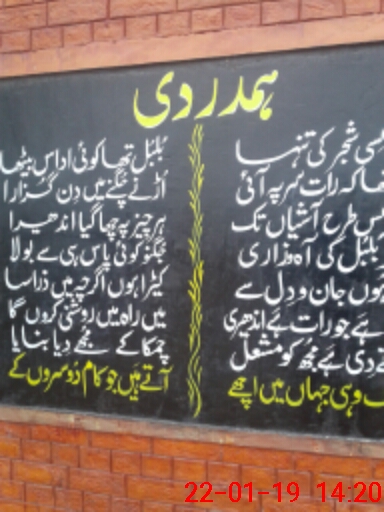 ہمدردی
شجر کی تنہا بلبل تھا کوئی اداس بیٹھا
کہ رات سر پہ آئی اڑنے چگنے میں دن گزارا
طرح آشیاں تک ہر چیز پہ چھا گیا اندھیرا
بلبل کی آہ و زاری جگنو کوئی پاس ہی سے بولا
ہوں جان و دل سے کیڑا ہوں اگرچہ میں ذرا سا
ہے جو رات ہے اندھیری میں راہ میں روشنی کروں گا
دی ہے مجھ کو مشعل چمکا کے مجھے دیا بنایا
وہی جہاں میں اچھے آتے ہیں جو کام دوسروں کے
22-01-19 14:20